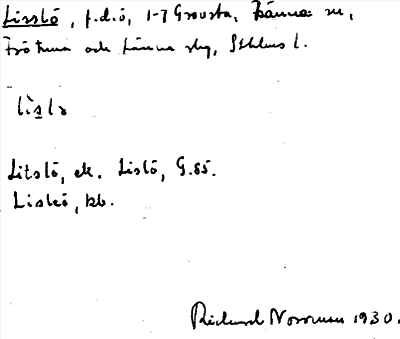 Lisslö, f.d.ö, 1-7 Grovsta, Länna sn,
Frötuna och Länna skg, Sthlms l.
lìslə
Litslö, ek. Lislö, G.85.
Lislö, kb.
Richard Norrman 1930.